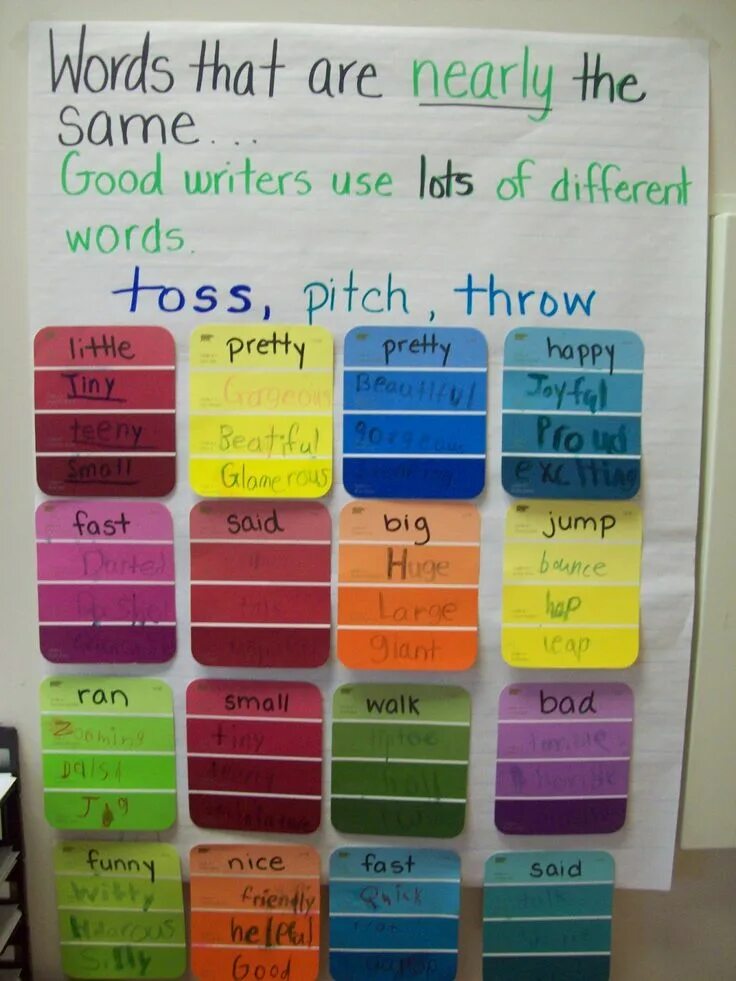 Words that are nearly the
same...
Good writers use lots of different
words.
toss, pitch, throw
little
Tiny
teeny
small
pretty
Gorgeous
Beatiful
Glamerous
pretty
Beautiful
gorgeous
happy
Joyful
Proud
exciting
fast
Darted
said
big
Huge
Large
giant
jump
bounce
hop
leap
ran
Zooming
Jog
small
tiny
teeny
walk
tiptoe
bad
terrible
Horrible
funny
witty
Hilarous
Silly
nice
friendly
helpful
Good
fast
Quick
said
talk